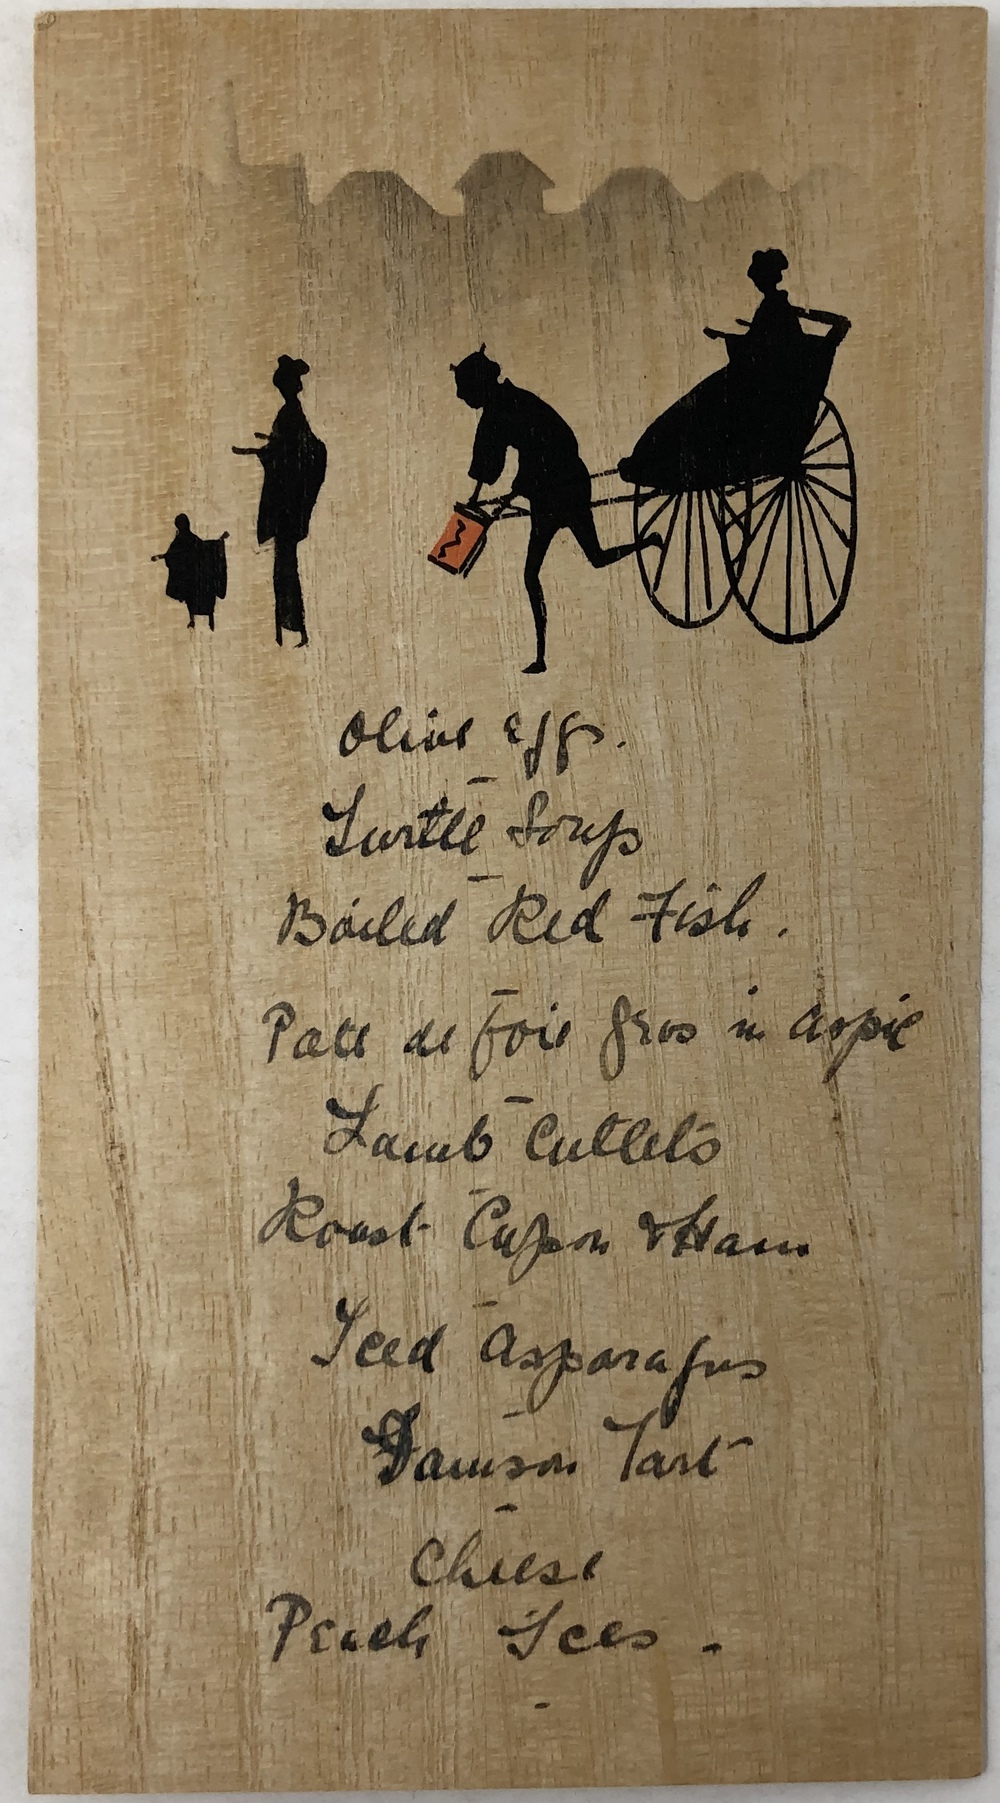 Olive Eggs.
Turtle Soup
Boiled Red Fish.
Pate de foie gras in aspic
Lamb Cutlets
Roast Capon & Ham
Iced Asparagus
Damson Tart
Cheese
Peach Ices -